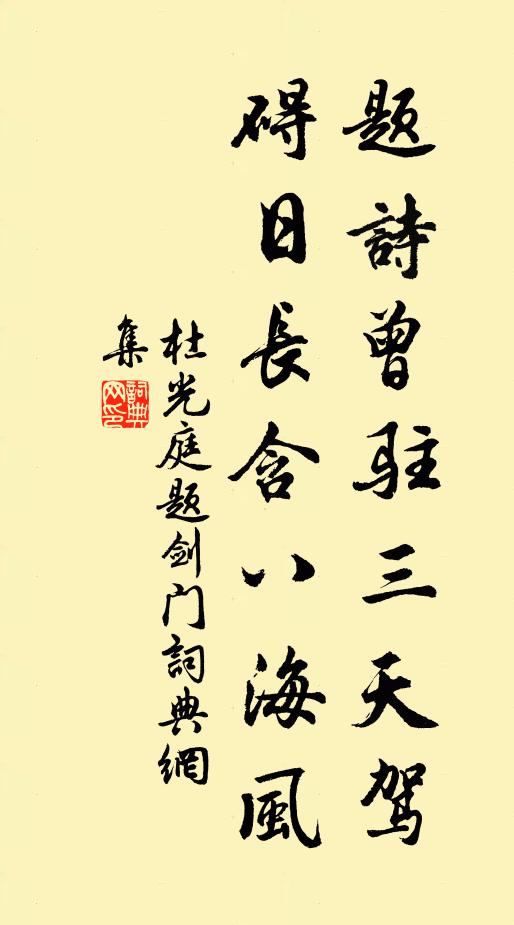 题詩曾驻三天駕
碍日長含八海風
杜光庭题剑门詞典網
集
詞典
网印